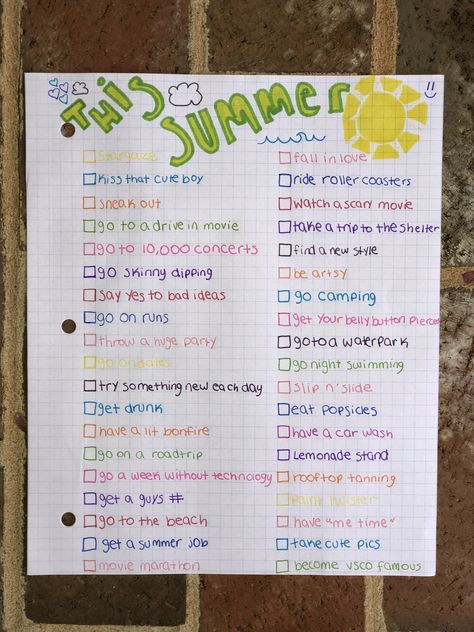 THIS SUMMER
stargaze
kiss that cute boy
sneak out
go to a drive in movie
go to 10,000 concerts
go skinny dipping
say yes to bad ideas
go on runs
throw a huge party
go on dates
try something new each day
get drunk
have a lit bonfire
go on a roadtrip
go a week without technology
get a guys #
go to the beach
get a summer job
movie marathon
fall in love
ride roller coasters
watch a scary movie
take a trip to the shelter
find a new style
be artsy
go camping
get your belly button pierced
go to a waterpark
go night swimming
slip n' slide
eat popsicles
have a car wash
Lemonade stand
rooftop tanning
paint twister
have "me time"
take cute pics
become vsco famous